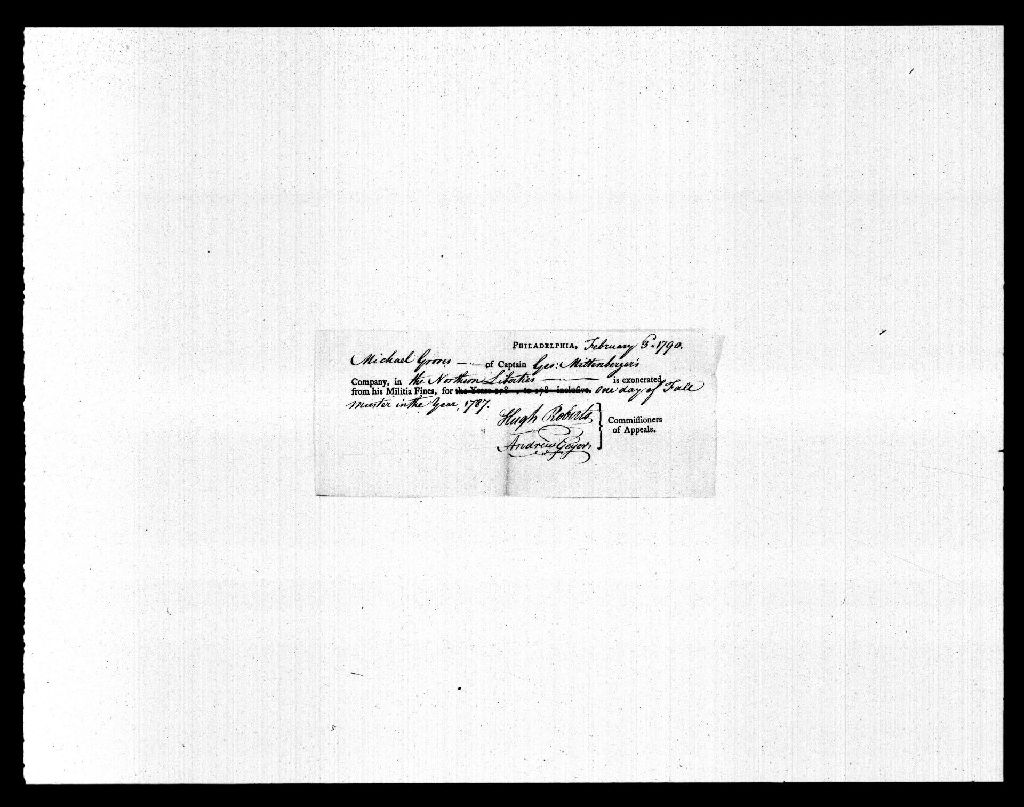 PHILADELPHIA, February 5. 1790.
Michael Groves — of Captain Geo: Mettenberger's
Company, in the Northern Liberties — is exonerated
from his Militia Fines, for the Years 178 to 178 inclusive. One day of Fall
Muster in the Year, 1787.
Hugh Roberts,
Andrew Geyer,
} Commissioners
of Appeals.